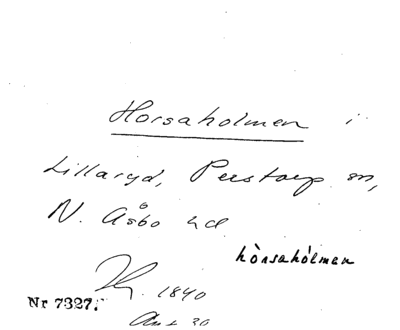 Horsaholmen i
Lillaryd, Perstorp sn,
N. Åsbo hd
hòrsahólmen
1840
Nr 7327.